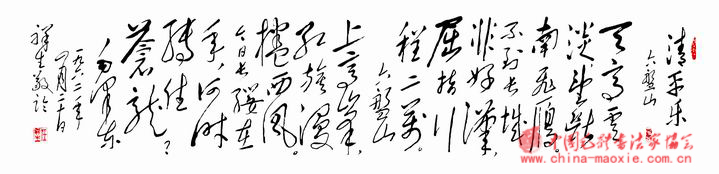 清平乐
六盘山
天高云
淡望断
南飞雁。
不到长城
非好汉,
屈指行
程二万。
六盘山
上高峰,
红旗漫
捲西风。
今日长缨在
手,何时
缚住
苍龙?
毛泽东
月二十日
祥生敬临
中国毛体书法家协会
www.china-maoxie.com.cn